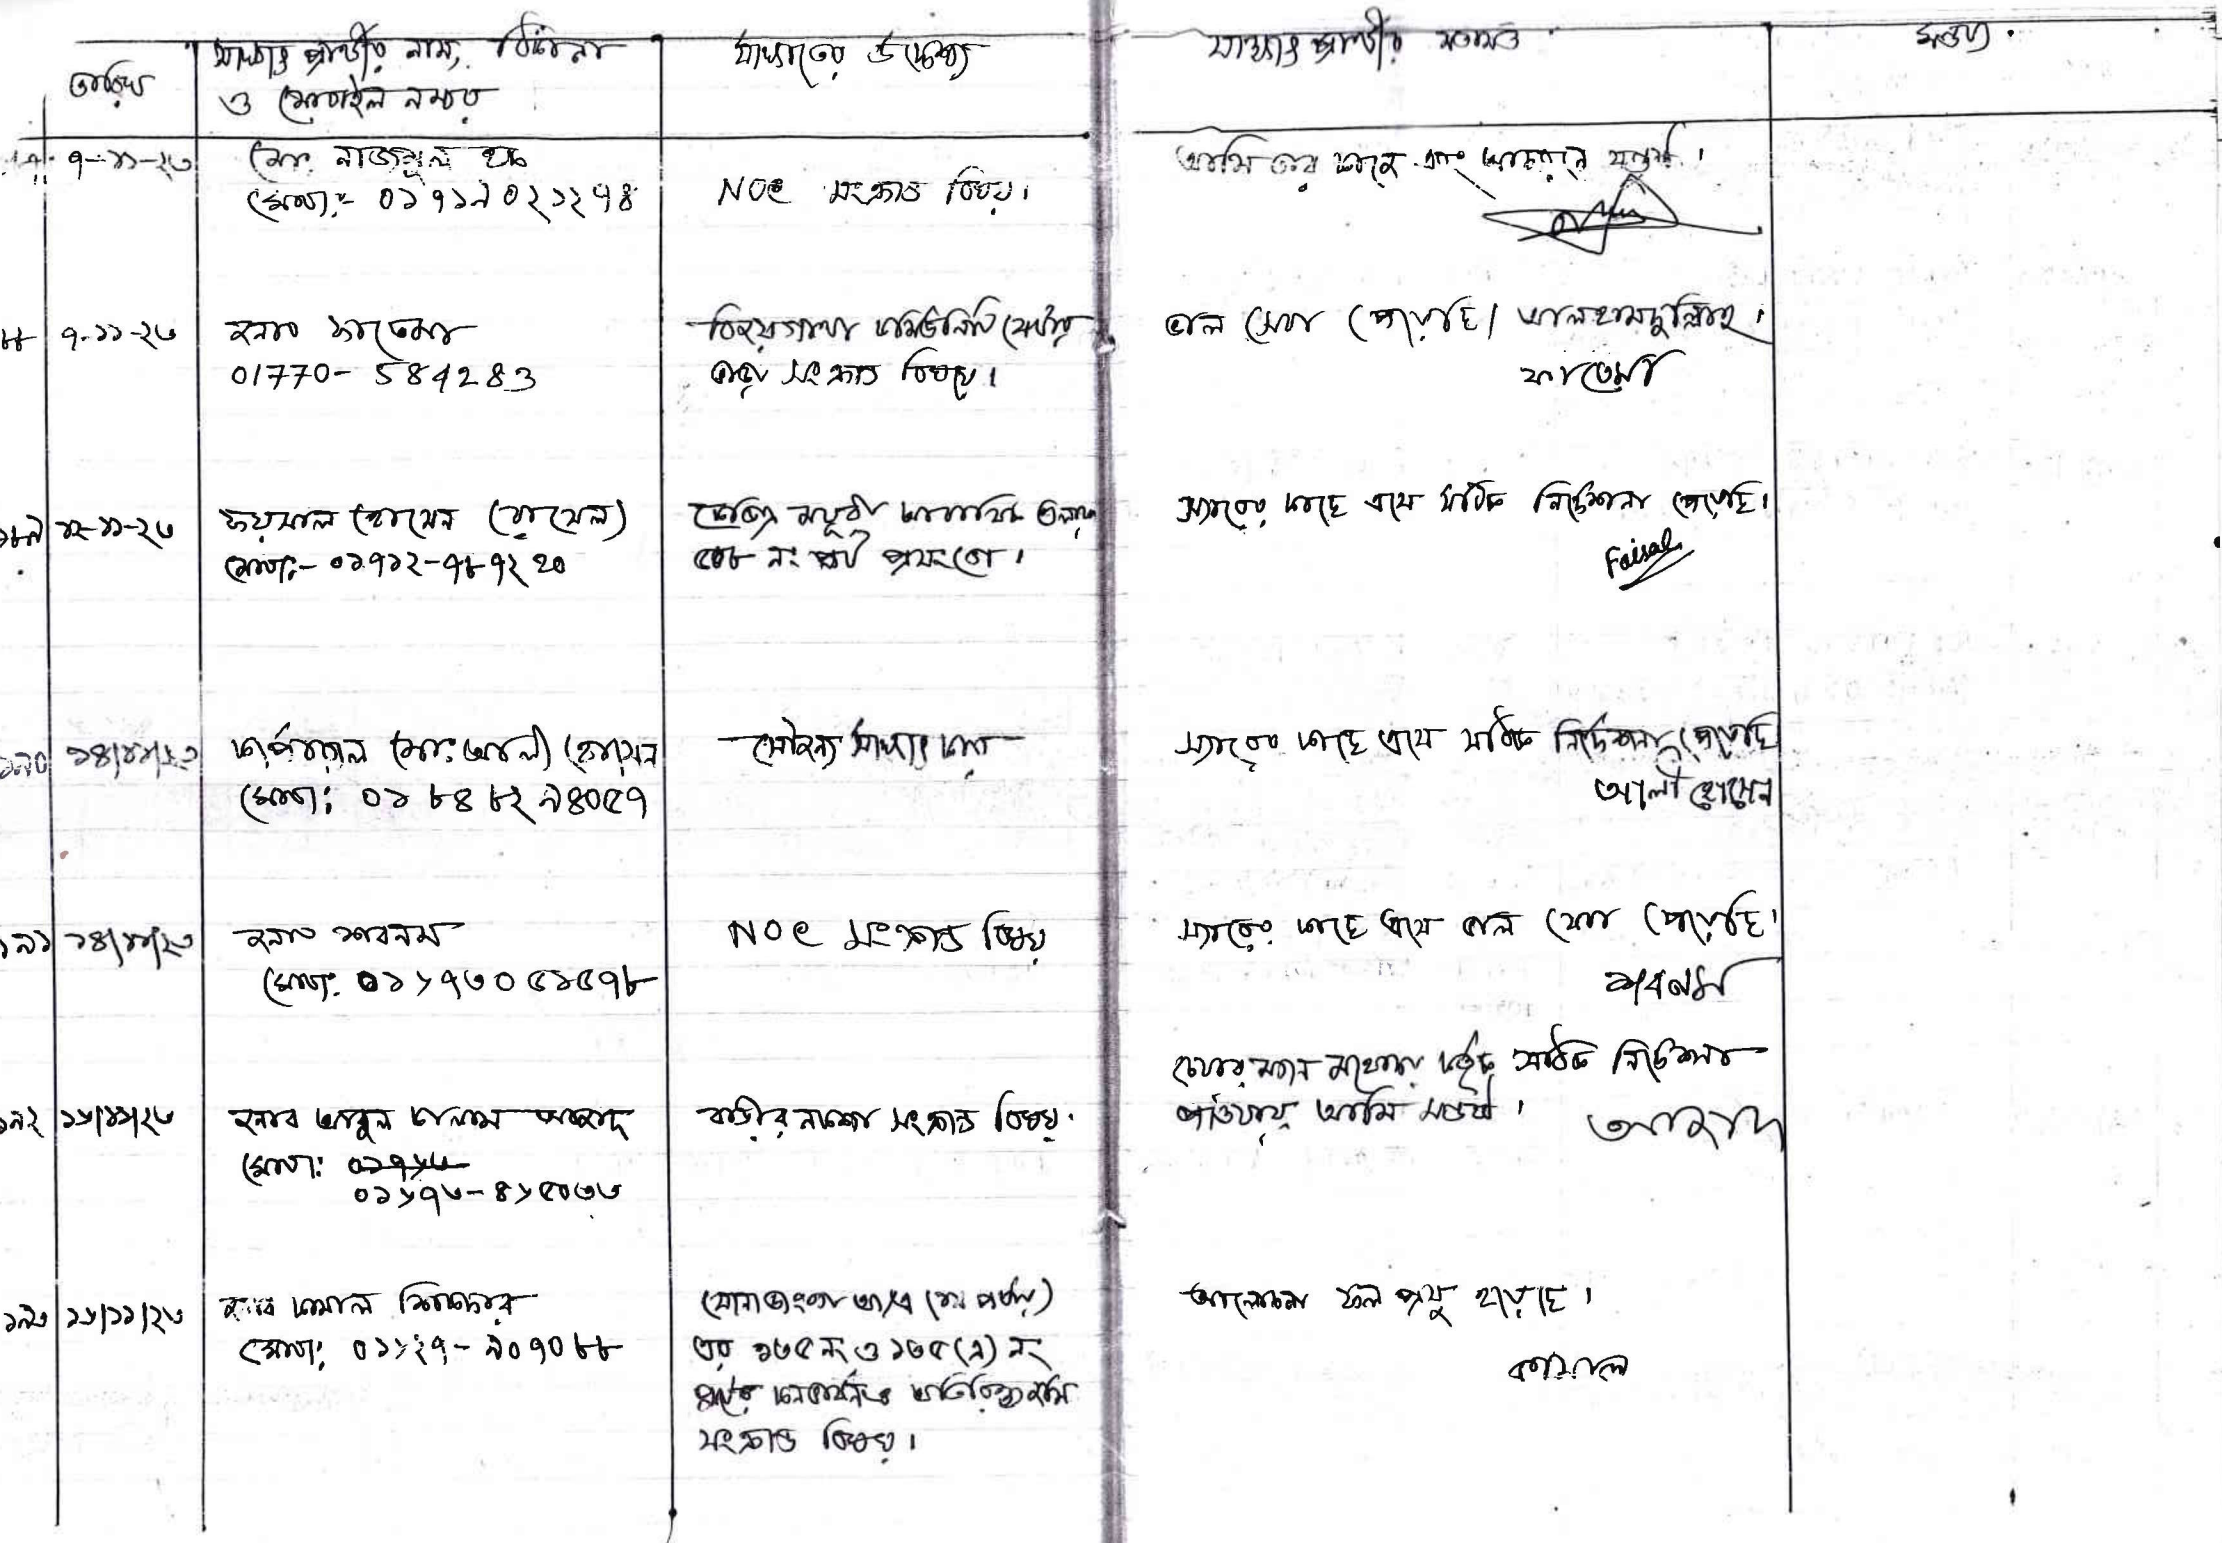 তারিখ
সাক্ষাৎ প্রার্থীর নাম, ঠিকানা
ও মোবাইল নম্বর
সাক্ষাতের উদ্দেশ্য
সাক্ষাৎ প্রার্থীর মতামত
মন্তব্য
৭-১১-২৩
মো: নাজমুল হক
মোবা:- ০১৭১৯০২১২৭৪
NOC সংক্রান্ত বিষয়।
আমি তার কাজে এবং আচরনে সন্তুষ্ট।
৮৮
৭-১১-২৩
জনাব ফাতেমা
01770- 584283
কমিউনিটি সেন্টার
ভাড়া সংক্রান্ত বিষয়।
ভাল সেবা পেয়েছি। আলহামদুলিল্লাহ।
ফাতেমা
১৮৯
১২-১১-২৩
ফয়সাল হোসেন (রাসেল)
মোবা:- ০১৭১২-৭৮৭২২০
ময়ূরী আবাসিক
৫০৮ নং প্লট প্রসংগে।
স্যারের কাছে এসে সঠিক নির্দেশনা পেয়েছি।
Faisal
১৯০
১৪/১১/২৩
কর্পোরাল মো: আলী হোসেন
মোবা: ০১৮৪৮২৯৪০৫৭
সৌজন্য সাক্ষাৎকার
স্যারের কাছে এসে সঠিক নির্দেশনা পেয়েছি
আলী হোসেন
১৯১
১৪/১১/২৩
জনাব শবনম
মোবা: ০১৯৭৩০৫১৫৭৮
NOC সংক্রান্ত বিষয়
স্যারের কাছে এসে ভাল সেবা পেয়েছি।
শবনম
১৯২
১৬/১১/২৩
জনাব আবুল কালাম আজাদ
মোবা:
০১৯৭৩-৪৬৫০৩৩
বাড়ীর নকশা সংক্রান্ত বিষয়।
চেয়ারম্যান মহোদয় কর্তৃক সঠিক নির্দেশনা
পাওয়ায় আমি সন্তুষ্ট।
আজাদ
১৯৩
১৬/১১/২৩
জনাব কামাল সিকদার
মোবা: ০১৯২৭-৯০৭০৮৮
সোনাডাংগা আ/এ (২য় পর্যায়)
এর ১৬৫ নং ও ১৬৫(এ) নং
প্লটের অতিরিক্ত জমি
সংক্রান্ত বিষয়।
আলোচনা ফল প্রসূ হয়েছে।
কামাল